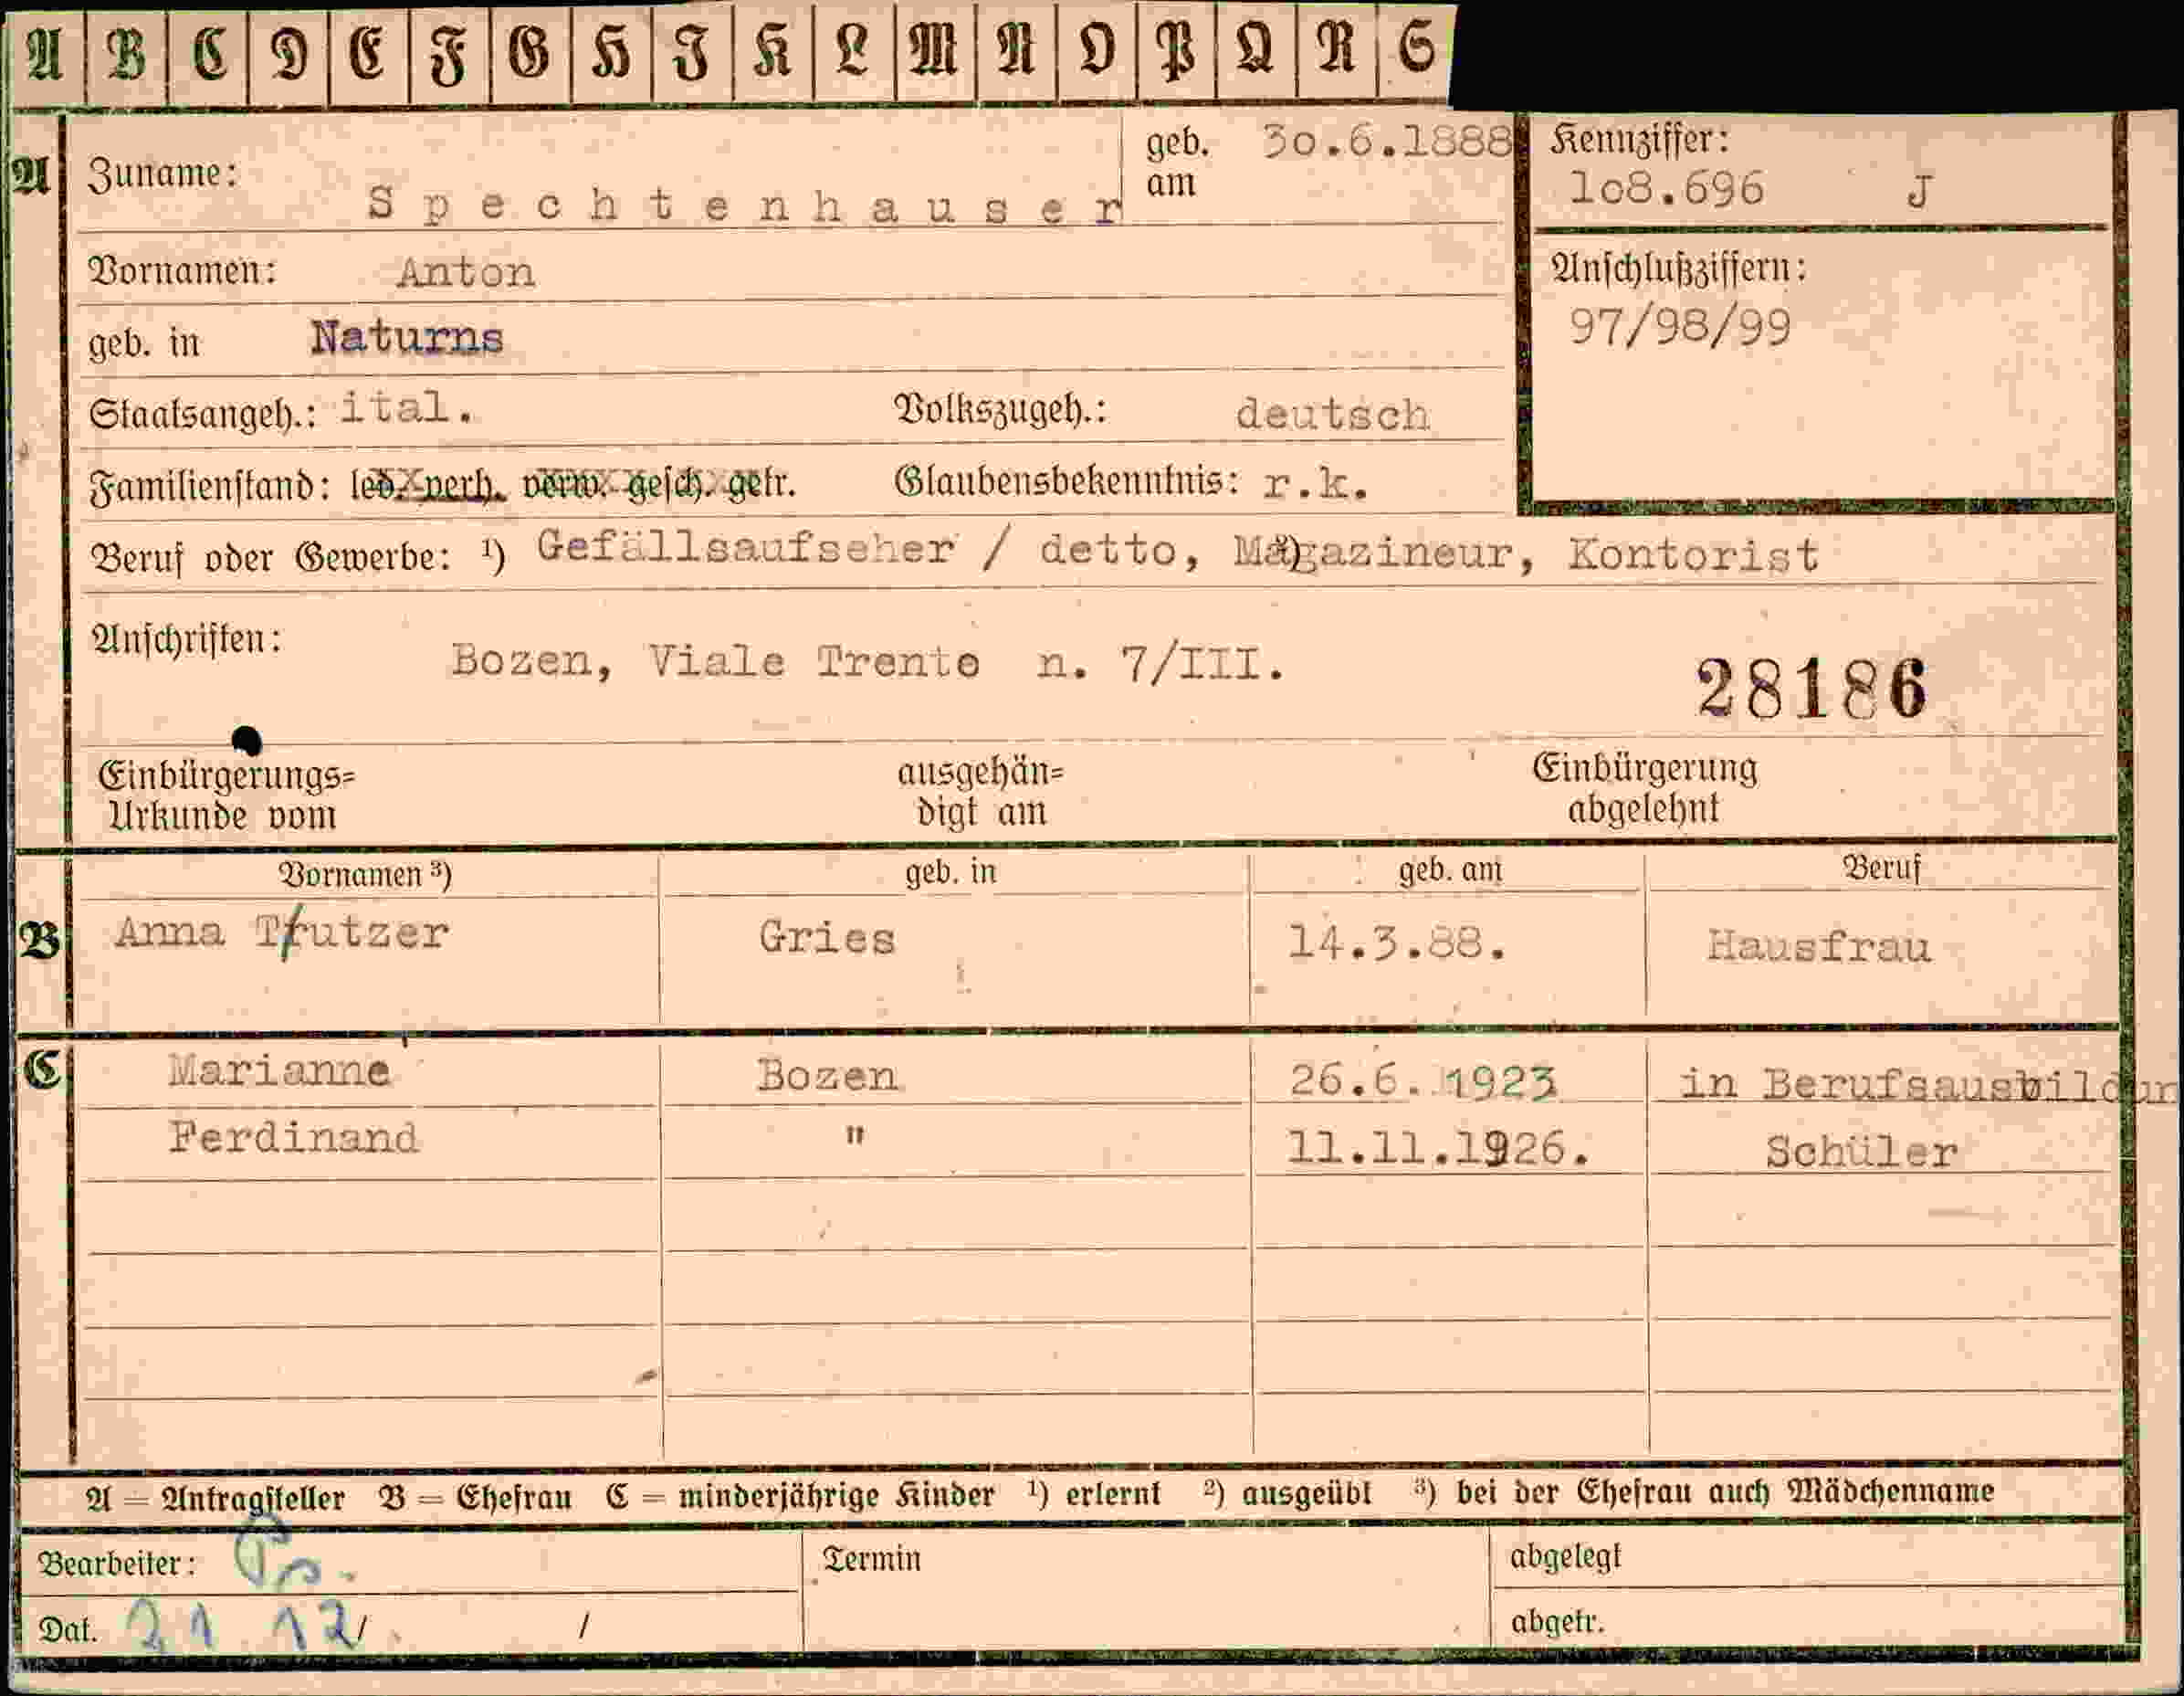 A B C D E F G H J K L M N O P Q R S
A Zuname: Spechtenhauser geb. am 30.6.1888 Kennziffer: 1o8.696 J
Vornamen: Anton Anschlußziffern: 97/98/99
geb. in Naturns
Staatsangeh.: ital. Volkszugeh.: deutsch
Familienstand: led. verh. verw. gesch. getr. Glaubensbekenntnis: r.k.
Beruf oder Gewerbe: ¹) Gefällsaufseher / detto, Magazineur, Kontorist
Anschriften: Bozen, Viale Trento n. 7/III. 28186
Einbürgerungs= ausgehän= Einbürgerung
Urkunde vom digt am abgelehnt
Vornamen ³) geb. in geb. am Beruf
B Anna Trutzer Gries 14.3.88. Hausfrau
C Marianne Bozen 26.6.1923 in Berufsausbildun
Ferdinand " 11.11.1926. Schüler
A = Antragsteller B = Ehefrau C = minderjährige Kinder ¹) erlernt ²) ausgeübt ³) bei der Ehefrau auch Mädchenname
Bearbeiter: Termin abgelegt
Dat. 21.12/ / abgetr.